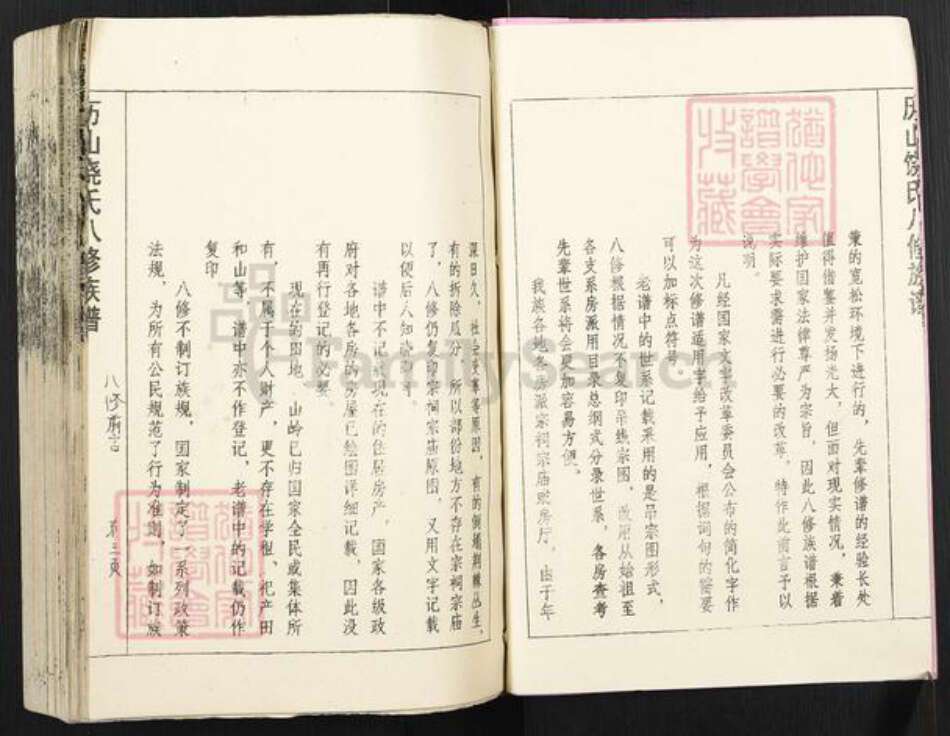 历山饶氏八修族谱
策的宽松环境下进行的,先辈修谱的经验长处
值得借鉴并发扬光大,但面对现实情况,兼着
维护国家法律尊严为宗旨,因此八修族谱根据
实际要求需进行必要的改革,特作此前言予以
说明。
凡经国家文字改革委员会公布的简化字作
为这次修谱适用字给予应用,根据词句的需要
可以加标点符号。
老谱中的世系记载采用的是吊宗图形式,
八修根据情况不复印吊线宗图,改用从始祖至
各支系房派用目录总纲式分录世系,各房查考
先辈世系将会更加容易方便。
我族各地各房派宗祠宗庙暨房厅,由于年
深日久,社会变革等原因,有的倒塌荆棘丛生,
有的拆除瓜分,所以部份地方不存在宗祠宗庙
了,八修仍复印宗祠宗庙原图,又用文字记载
以便后人知晓。
谱中不记载现在的住居房产,国家各级政
府对各地各房的房屋已绘图详细记载,因此没
有再行登记的必要。
现在的田地、山岭已归国家全民或集体所
有,不属于个人财产,更不存在学租、祀产田
和山等,谱中亦不作登记,老谱中的记载仍作
复印
八修不制订族规,国家制定了一系列政策
法规,为所有公民规范了行为准则,如制订族
八修前言
第三页
历山饶氏八修族谱
犹他家谱学会收藏
犹他家谱学会收藏
FamilySearch